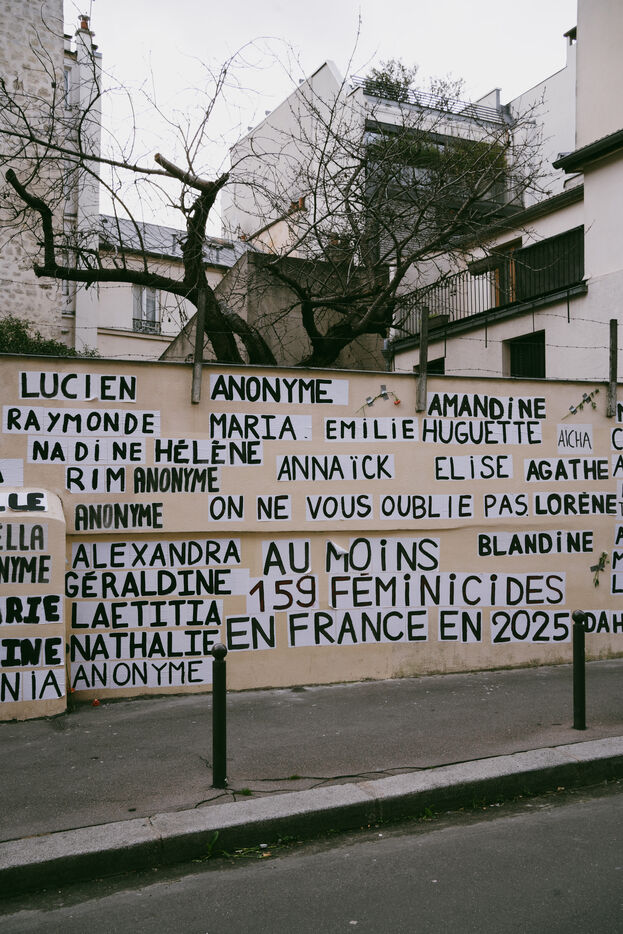 LUCIEN ANONYME AMANDINE
RAYMONDE MARIA EMILIE HUGUETTE AÏCHA
NADINE HÉLÈNE
RIM ANONYME ANNAÏCK ELISE AGATHE
ANONYME ON NE VOUS OUBLIE PAS LORÈNE
ALEXANDRA AU MOINS BLANDINE
GÉRALDINE 159 FÉMINICIDES
LAETITIA
NATHALIE EN FRANCE EN 2025
ANONYME